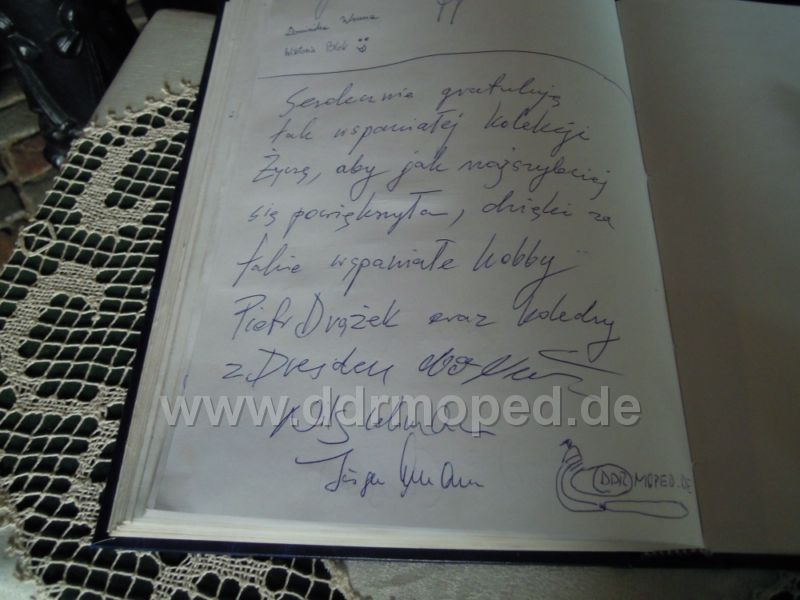 Dominika
Wiktoria
Serdecznie gratuluję
tak wspaniałej kolekcji
Życzę, aby jak najszybciej
się powiększyła, dzięki za
takie wspaniałe hobby
Piotr Drążek oraz koledzy
z Dresden
www.ddrmoped.de
Jürgen
DDRMOPED.DE